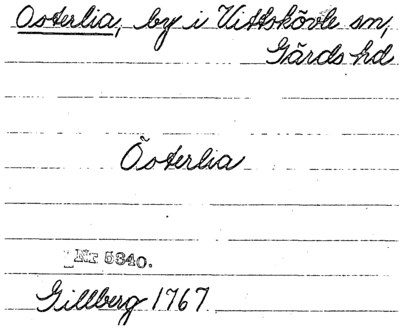 Österlia, by i Vittskövle sn,
Gärds hd
Österlia
Nr 5340.
Gillberg 1767